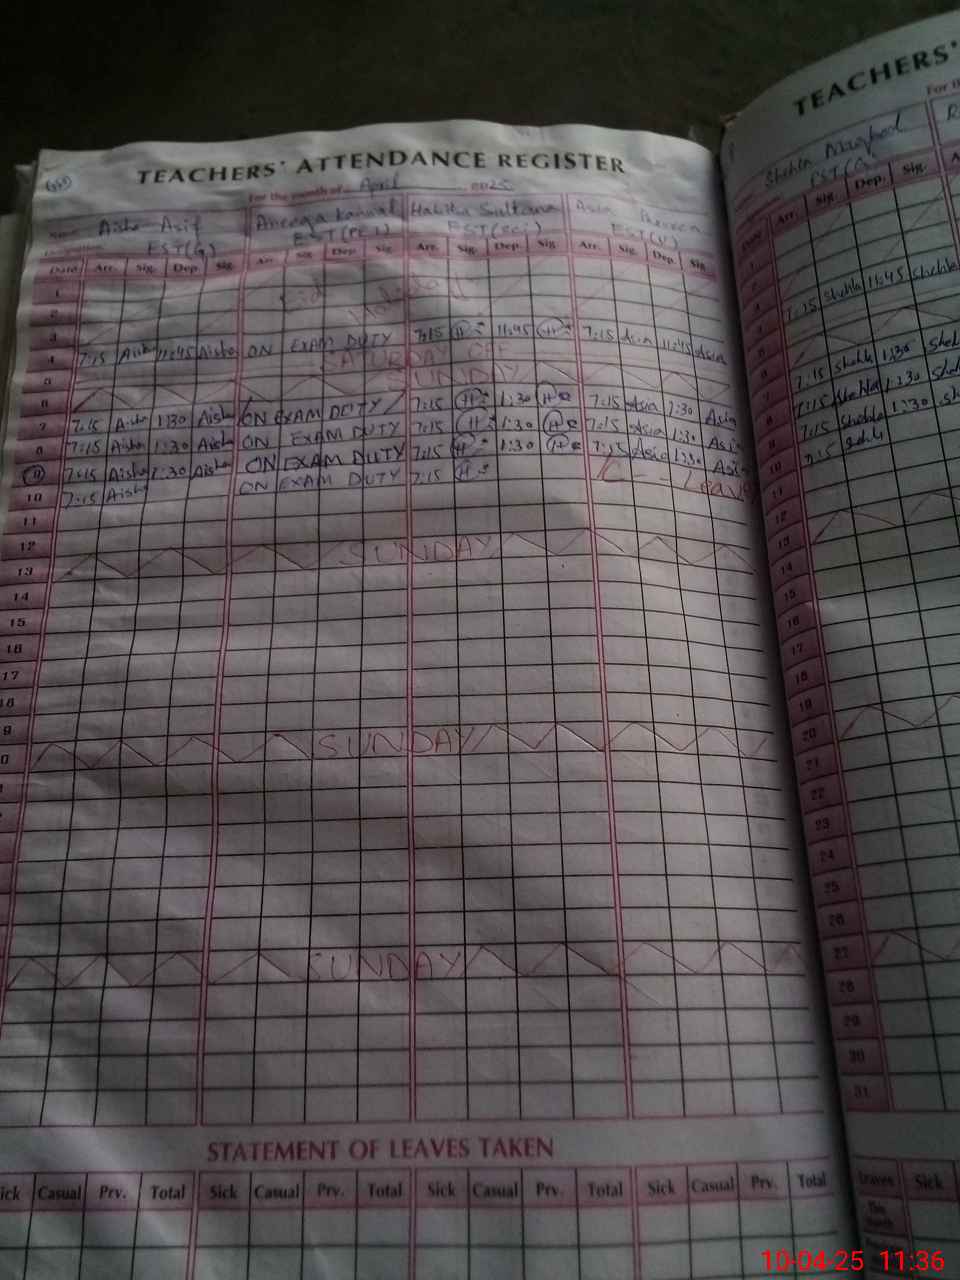 TEACHERS' ATTENDANCE REGISTER
For the month of April 2025
Name Aisha Asif Aneeqa Kanwal Habiba Sultana Asia Parveen
Designation EST(G) EST(PET) EST(Sci) EST(U)
Date Arr. Sig. Dep. Sig. Arr. Sig. Dep. Sig. Arr. Sig. Dep. Sig. Arr. Sig. Dep. Sig.
1
2 Eid Holiday
3
4 7:15 Aisha 11:45 Aisha ON EXAM DUTY 7:15 11:45 7:15 Asia 11:45 Asia
5 SATURDAY OFF
6 SUNDAY
7 7:15 Aisha 1:30 Aisha ON EXAM DUTY 7:15 1:30 7:15 Asia 1:30 Asia
8 7:15 Aisha 1:30 Aisha ON EXAM DUTY 7:15 1:30 7:15 Asia 1:30 Asia
9 7:15 Aisha 1:30 Aisha ON EXAM DUTY 7:15 1:30 7:15 Asia 1:30 Asia
10 7:15 Aisha ON EXAM DUTY 7:15 C - - Leave
11
12
13 SUNDAY
14
15
16
17
18
19
20 SUNDAY
SUNDAY
STATEMENT OF LEAVES TAKEN
Sick Casual Prv. Total Sick Casual Prv. Total Sick Casual Prv. Total Sick Casual Prv. Total
TEACHERS'
For the
Shehla
EST(G)
Date Arr. Sig. Dep. Sig.
1
2
3
4 7:15 Shehla 11:45 Shehla
5
6
7 7:15 Shehla 1:30
8 7:15 Shehla 1:30
9 7:15 Shehla 1:30
10 7:15
11
12
13
14
15
16
17
18
19
20
21
22
23
24
25
26
27
28
29
30
31
Leaves Sick
This Month
10-04-25 11:36